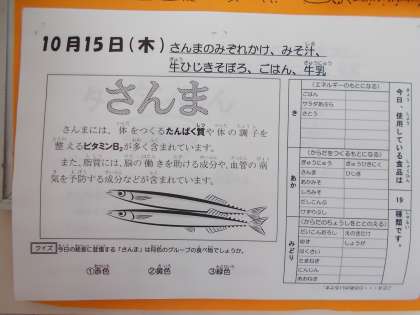 10月15日(木) さんまのみぞれかけ、みそ汁、
牛ひじきそぼろ、ごはん、牛乳
さんま
さんまには、体をつくるたんぱく質や体の調子を
整えるビタミンB₂が多く含まれています。
また、脂質には、脳の働きを助ける成分や、血管の病
気を予防する成分などが含まれています。
クイズ 今日の給食に登場する「さんま」は何色のグループの食べ物でしょうか。
①赤色 ②黄色 ③緑色
今日、使用している食品は 19 種類です。
き
(エネルギーのもとになる)
ごはん
サラダあぶら
さとう
あか
(からだをつくるもとになる)
ぎゅうにゅう ぎゅうひきにく
さんま ひじき
あかみそ
しろみそ
だしこんぶ
けずりぶし
みどり
(からだのちょうしをととのえる)
だいこんおろし えのきたけ
ゆず しょうが
はくさい
たまねぎ
にんじん
あおねぎ